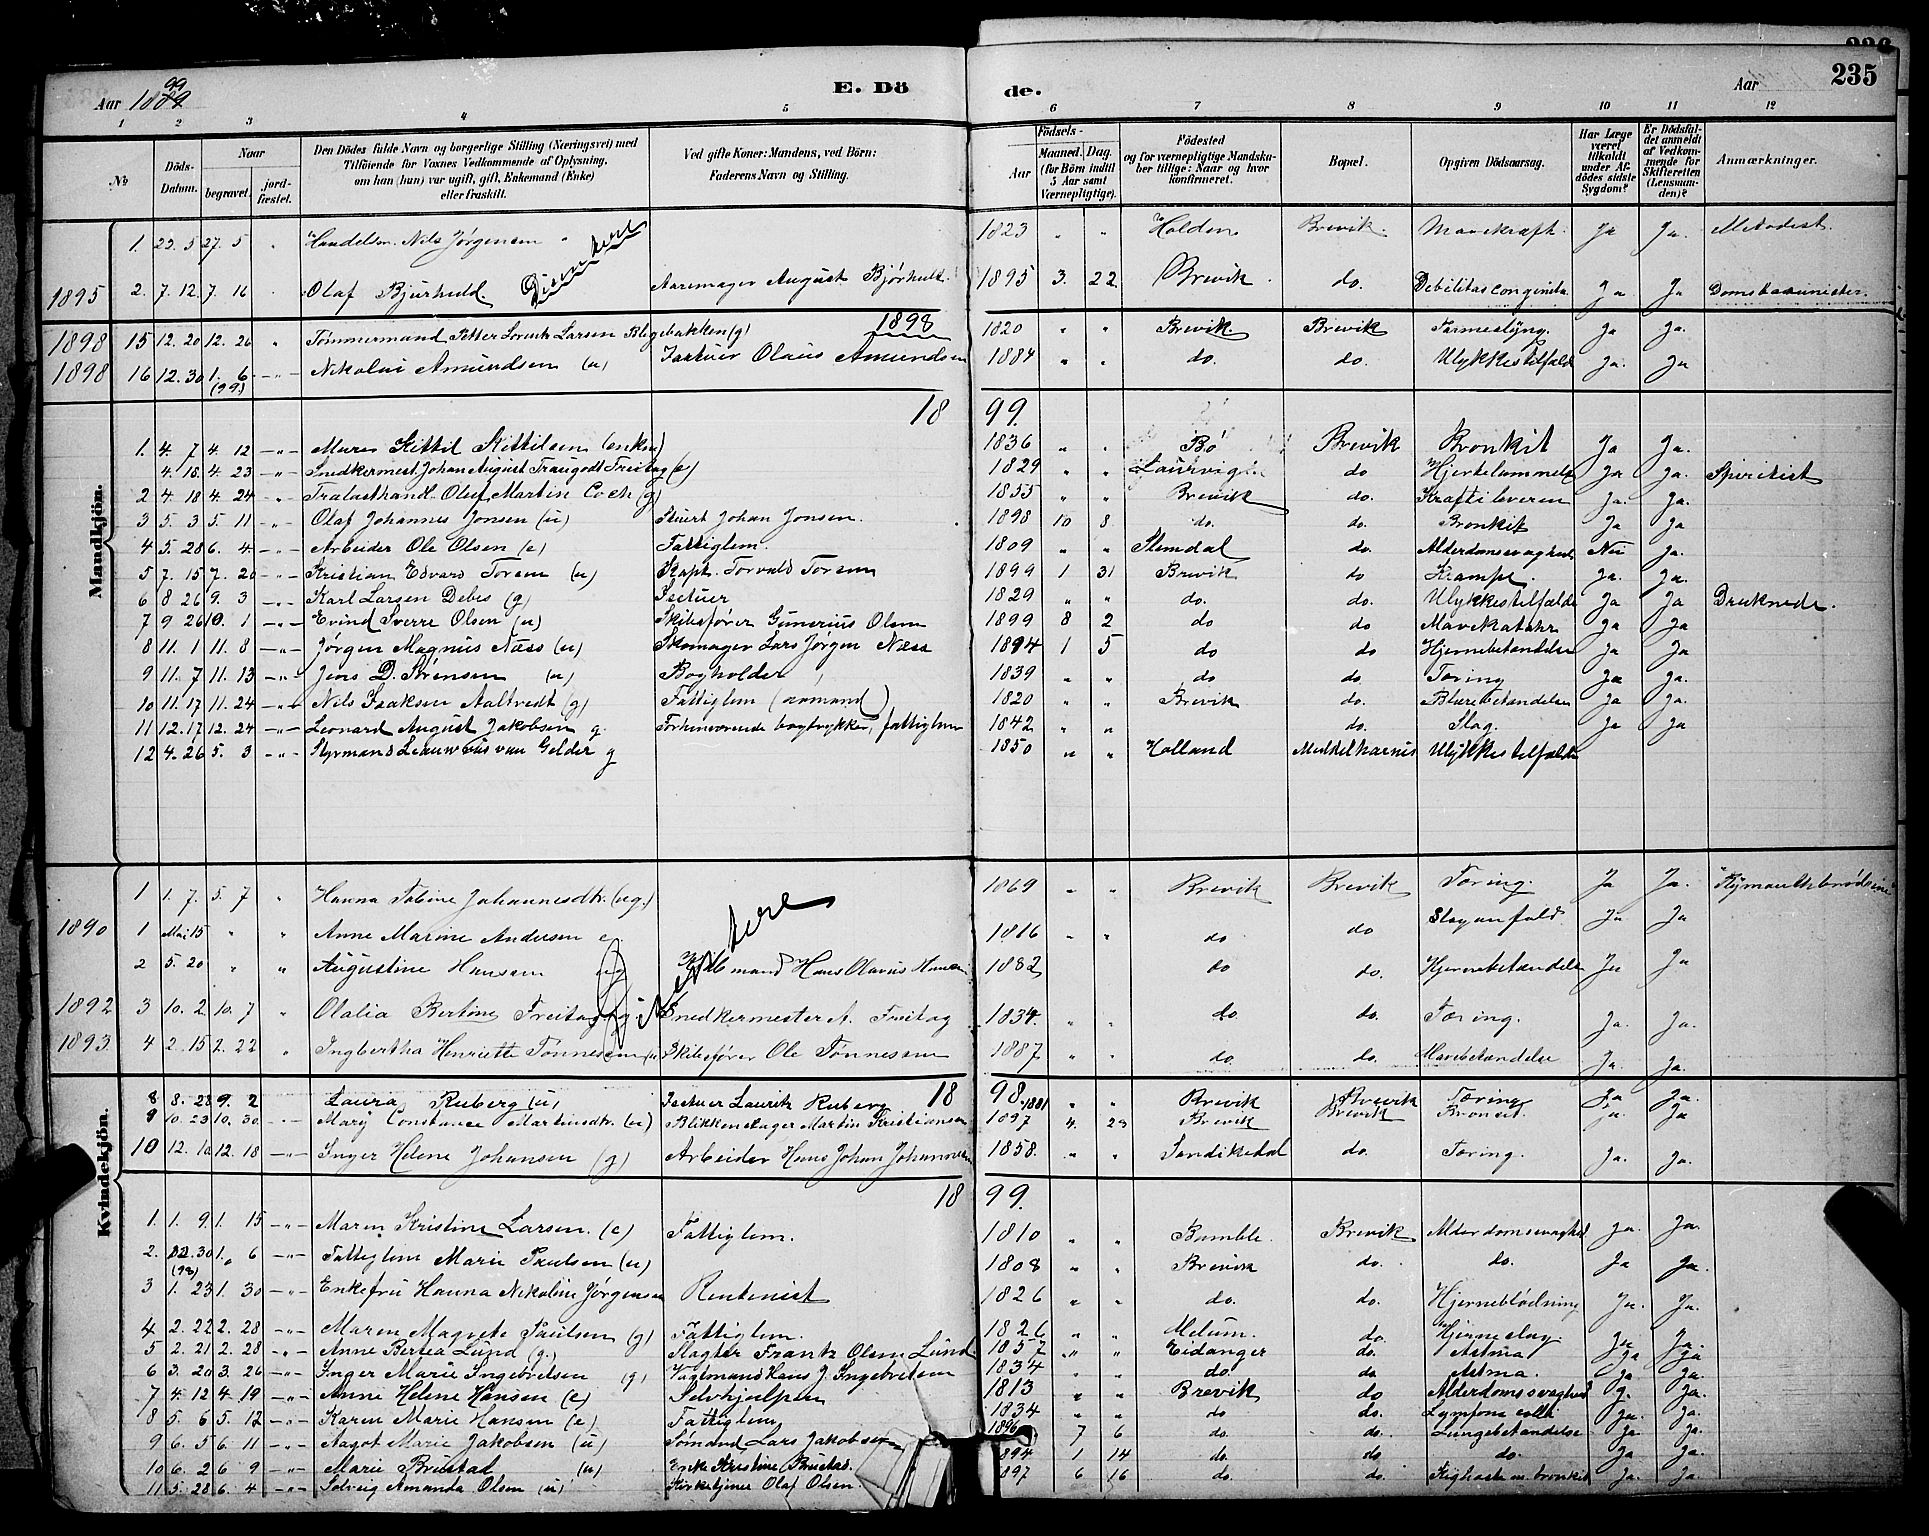 Aar 1899
E. Dö
de.
Aar
235
1 2 3 4 5 6 7 8 9 10 11 12
№
Döds-Datum.
Naar
begravet.
jord-fæstet.
Den Dödes fulde Navn og borgerlige Stilling (Næringsvei) med Tilföiende for Voxnes Vedkommende af Oplysning, om han (hun) var ugift, gift, Enkemand (Enke) eller fraskilt.
Ved gifte Koner: Mandens, ved Börn: Faderens Navn og Stilling.
Födsels-
Aar
Maaned. Dag.
(for Börn indtil 5 Aar samt Værnepligtige).
Födested og for værnepligtige Mandskaber tillige: Naar og hvor konfirmeret.
Bopæl.
Opgiven Dödsaarsag.
Har Læge været tilkaldt under Afdödes sidste Sygdom?
Er Dödsfaldet anmeldt af Vedkommende for Skifteretten (Lensmanden)?
Anmærkninger.
Mandkjön.
1. 23. 5 27. 5 " Handelsm. Nils Jørgensen 1823 " " Holden Brevik. Mavekræft. Ja Ja. Metodist.
1895 2. 7. 12. 7. 16 Olaf Bjurhuld. Dissentere Aaremager August Bjørhuld 1895 3. 22 Brevik do. Debilitas congenita Ja Ja
1898
1898 15 12. 20 12. 26 " Tømmermand Petter Lorentz Larsen Blegebakken (g) 1820 " " Brevik. Brevik Ja Ja.
1898 16 12. 30 1. 6 (99) -"- Nikolai Amundsen (u) Olaus Amundsen 1884 " " do. do. Ulykkestilfælde Ja. Ja
1899.
1. 4. 7 4. 12 -"- Kittil Kittilsen (enkem) 1836 " " Bø Brevik Bronkit Ja Ja.
4. 18. 4. 23 -"- Snedkermest. Johan August Traugodt Freitag (e) 1829 " " Laurvig do Ja Ja. Spiritist
2 4. 18 4. 24 -"- Trælasthandl. Oluf Martin Coch (g) 1855 " " Brevik do. Kræft i leveren Ja. Ja.
3 5. 3 5. 11 -"- Olaf Johannes Jonsen (u) Stuert Johan Jonsen. 1898 10 8 do. do. Bronkit Ja Ja
4 5. 28 6. 4 -"- Arbeider Ole Olsen (e) Fattiglem. 1809 " " Slemdal do. Alderdomssvaghed Nei Ja.
5 7. 15 7. 20 -"- Kristian Edvard Torsen (u) Kapt. Torvald Torsen 1899 1 31 Brevik do Krampe. Ja. Ja.
6 8 26 9. 3 -"- Karl Larsen Debes (g) 1829 " " do. do. Ulykkestilfælde Ja Ja Druknede.
7 9 26 10. 1 -"- Evind Sverre Olsen (u) Skibsfører Gunerius Olsen 1899 8 2 do do Mavekatahr Ja Ja
8 11. 1 11. 8 -"- Jørgen Magnus Næss (u) Skomager Lars Jørgen Næss 1894 1 5 do do Hjernebetændelse Ja Ja
9 11. 7 11. 13 -"- Jens D. Sørensen (u) Bogholder 1839 " " do do. Tæring Ja Ja
10 11. 17 11. 24 -"- Nils Isaksen Aaltvedt (g) Fattiglem (sømand) 1820 " " Brevik do. Blærebetændelse Ja Ja
11 12. 17 12. 24 -"- Leonard August Jakobsen g. Forhenværende bogtrykker, fattiglem 1842 " " do. Slag. Ja Ja
12 4. 26 5. 3 -"- Styrmand van Gelder g 1850 " " Holland Meddelharnis Ulykkestilfælde
Kvindekjön.
1 1. 7. 5. 7 " Hanna Johannesdtr. (ug.) 1869 " " Brevik Brevik Tæring. Ja Ja.
1890 1 Mai 15 " " Anne Marine Andersen e. 1816 " " do do Slaganfald Ja. Ja
2 5. 20 " " Augustine Hansen ug Hans Olavus Hansen 1882 do do. Hjernebetændelse Ja Ja
Dissentere
1892 3 10. 2 10. 7 " Olalia Bertine Freitag g. Snedkermester A. Freitag 1834. " " do do. Tæring. Ja. Ja.
1893. 4 2. 15 2. 22 " Ingbertha Henriette Tønnesen Skibsfører Ole Tønnesen 1887 " " do. do. Mavebetændelse Ja. Ja.
1898.
8 8. 28 9. 2 Laura Ruberg (u) Lauritz Ruberg 1881 " " Brevik Brevik Tæring Ja Ja.
9 10. 23 10. 30. -"- Mary Constance Martinsdtr. (u) Blikkenslager Martin Kristiansen 1897 4. 23 Brevik Brevik Bronkit. Ja. Ja
10 12. 10 12. 18 -"- Inger Helene Johansen (g) Arbeider Hans Johan Johannsen 1858. " " Sandikedal do. Tæring. Ja. Ja.
1899.
1. 1. 9. 1. 15 -"- Maren Kristine Larsen. (e) Fattiglem. 1810 " " Bamble. Brevik Alderdomssvaghed Ja. Ja.
2. 12. 30 (98) 1. 6 -"- Fattiglem Marie Paulsen (u) 1808 " " Brevik do. do. Ja Ja.
3 1. 23 1. 30 -"- Enkefru Hanna Nikoline Jørgensen Rentenist 1826 " " do. do. Hjerneblødning Ja. Ja.
4 2. 22 2. 28 -"- Maren Magrete Paulsen (g) Fattiglem. 1826 " " Melum. do. Hjerneslag. Ja Ja.
5 2. 21 2. 28 -"- Anne Bertea Lund (g.) Slagter Frantz Olsen Lund 1857 " " Eidanger do. Astma Ja Ja
6 3. 20 3. 26 -"- Inger Marie Ingebretsen (g) Vagtmand Hans J. Ingebretsen 1834 " " do. do Astma. Ja Ja.
7 4. 12 4. 19 -"- Anne Helene Hansen (e) Selvhjulpen 1813 " " Brevik do Alderdomssvaghed Ja.
8 5. 6 5. 12 -"- Karen Marie Hansen (e) Fattiglem 1834 " " do do. Ja. Ja.
9 6. 5 6. 11 -"- Aagot Marie Jakobsen (u) Sømand Lars Jakobsen 1896 7 6 do. do. Lungebetændelse Ja Ja.
10 6. 2 6 9 -"- Marie Brustad (u) Enke Kristine Brustad. 1894 1 14 do. do do. Ja Ja
11 5. 28 6. 4 -"- Solveig Amanda Olsen (u) Kirketjener Olaf Olsen. 1897 6 16 do. do. Kighoste m. bronkit Ja. Ja.